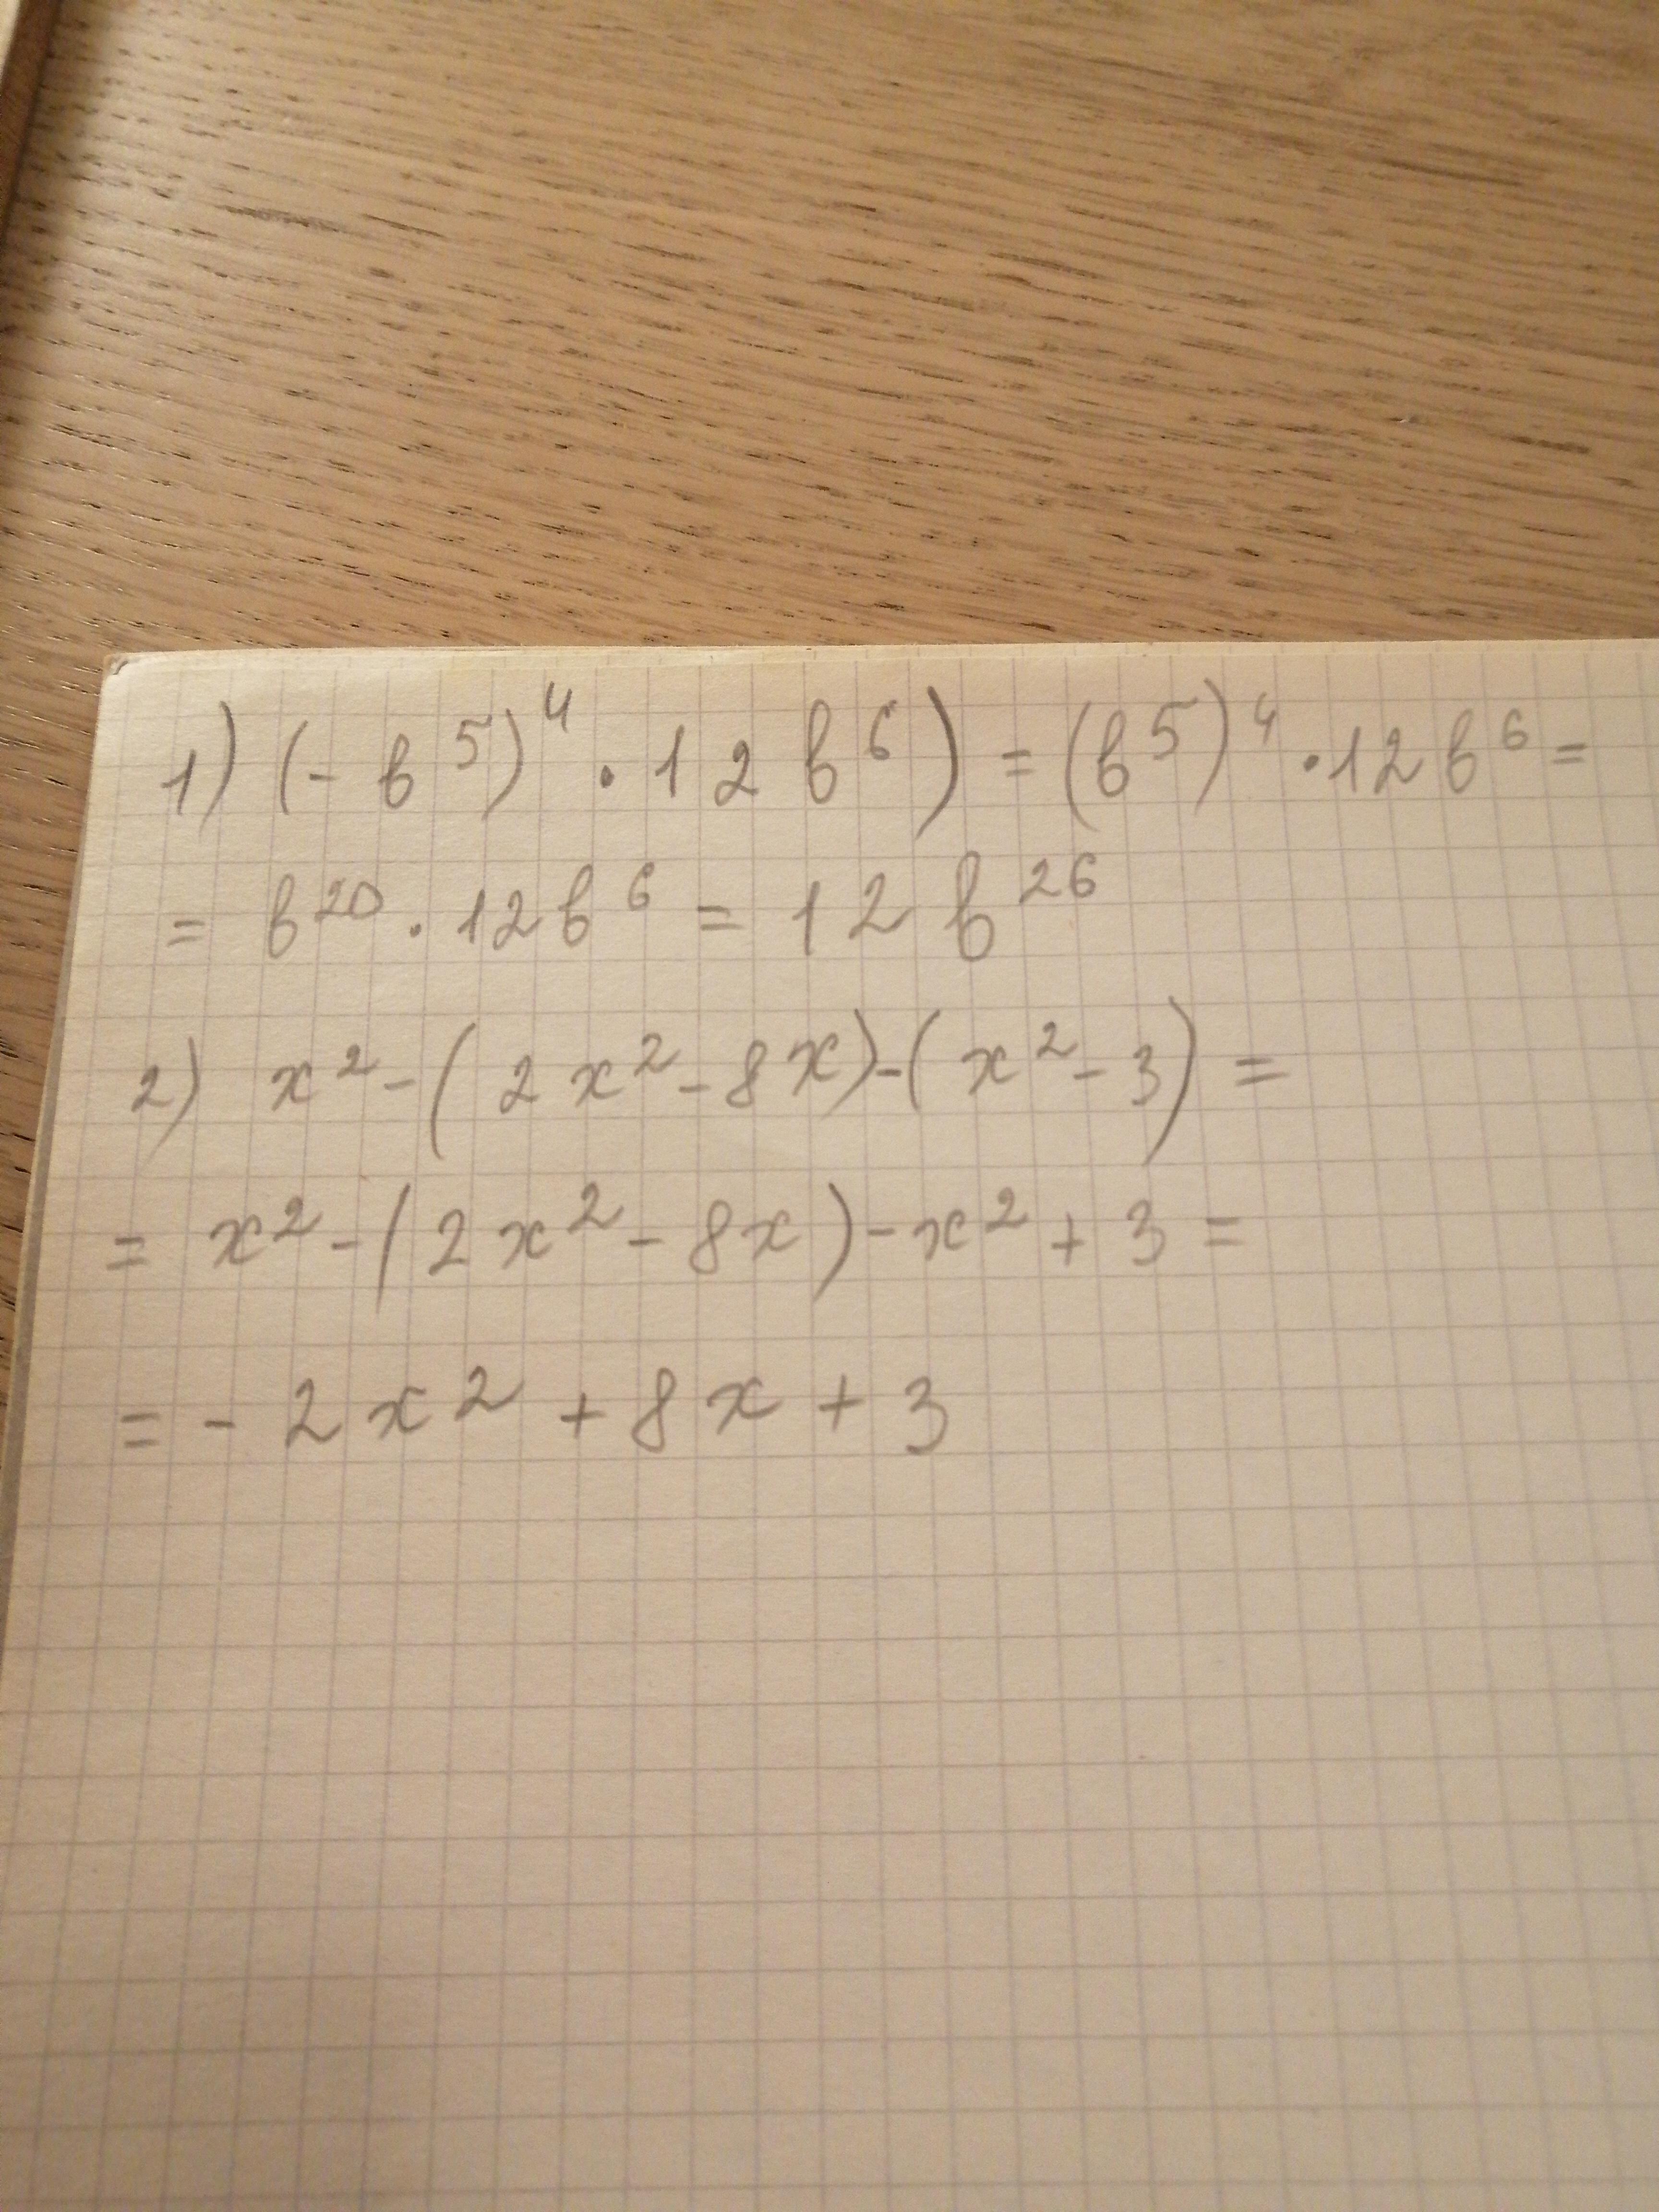 1) (- b⁵)⁴ · 12 b⁶) = (b⁵)⁴ · 12 b⁶ =
= b²⁰ · 12 b⁶ = 12 b²⁶
2) x² - (2x² - 8x) - (x² - 3) =
= x² - (2x² - 8x) - x² + 3 =
= - 2x² + 8x + 3